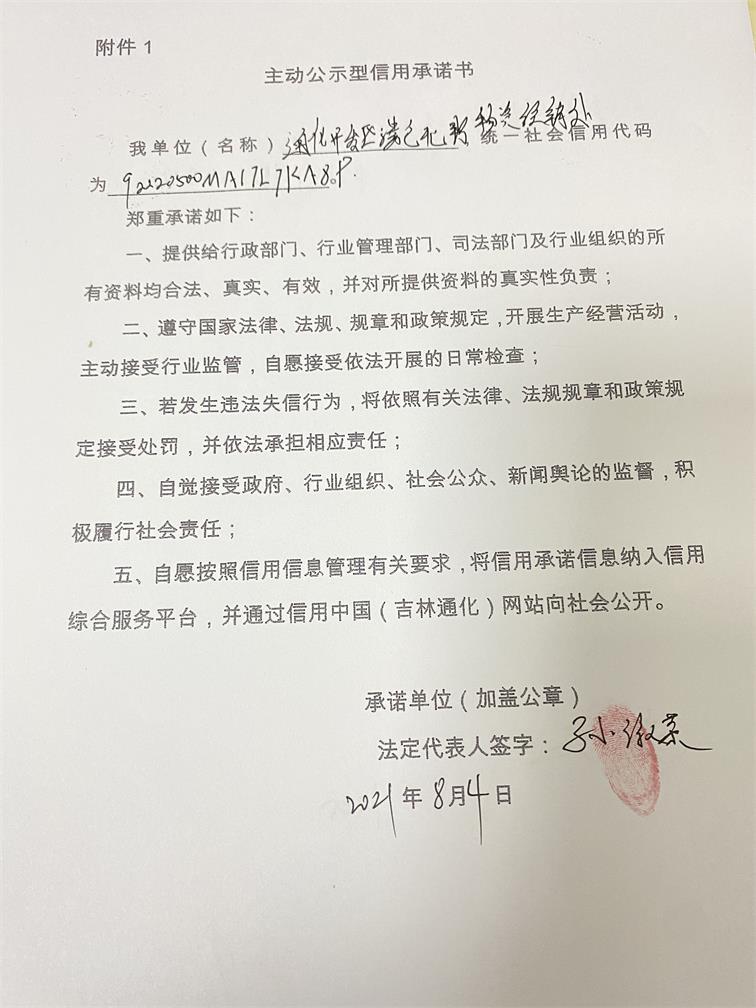 附件 1
主动公示型信用承诺书
我单位（名称）通化开发区 经销处 统一社会信用代码
为 92220500MA17L7KA8P.
郑重承诺如下：
一、提供给行政部门、行业管理部门、司法部门及行业组织的所
有资料均合法、真实、有效，并对所提供资料的真实性负责；
二、遵守国家法律、法规、规章和政策规定，开展生产经营活动，
主动接受行业监管，自愿接受依法开展的日常检查；
三、若发生违法失信行为，将依照有关法律、法规规章和政策规
定接受处罚，并依法承担相应责任；
四、自觉接受政府、行业组织、社会公众、新闻舆论的监督，积
极履行社会责任；
五、自愿按照信用信息管理有关要求，将信用承诺信息纳入信用
综合服务平台，并通过信用中国（吉林通化）网站向社会公开。
承诺单位（加盖公章）
法定代表人签字：孙小
2021 年 8 月 4 日